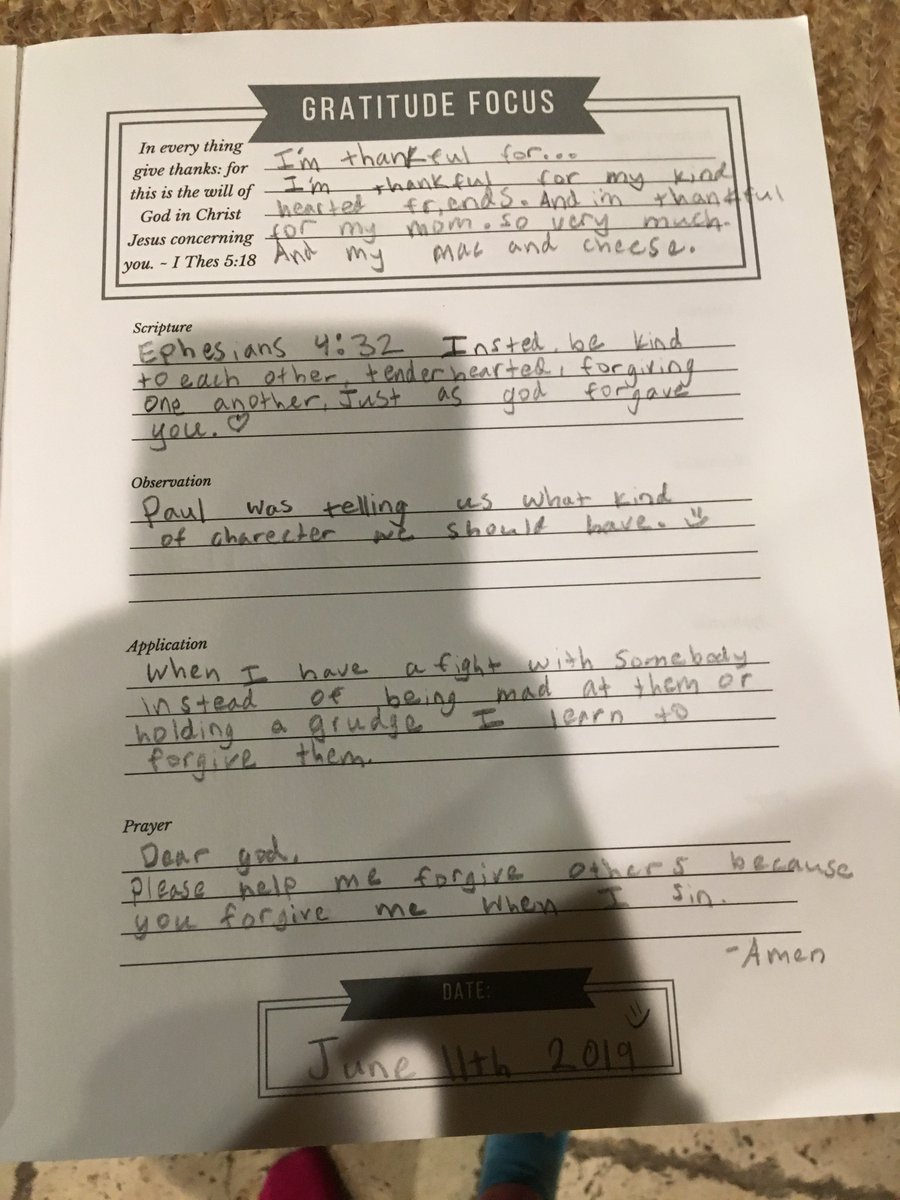 GRATITUDE FOCUS
In every thing
give thanks: for
this is the will of
God in Christ
Jesus concerning
you. ~ I Thes 5:18
I'm thankful for...
I'm thankful for my kind
hearted friends. And im thankful
for my mom. so very much.
And my mac and cheese.
Scripture
Ephesians 4:32 Insted, be kind
to each other, tenderhearted, forgiving
one another, Just as god forgave
you. ♡
Observation
Paul was telling us what kind
of charecter we should have.
Application
When I have a fight with somebody
instead of being mad at them or
holding a grudge I learn to
forgive them.
Prayer
Dear god,
please help me forgive others because
you forgive me when I sin.
-Amen
DATE:
June 11th 2019